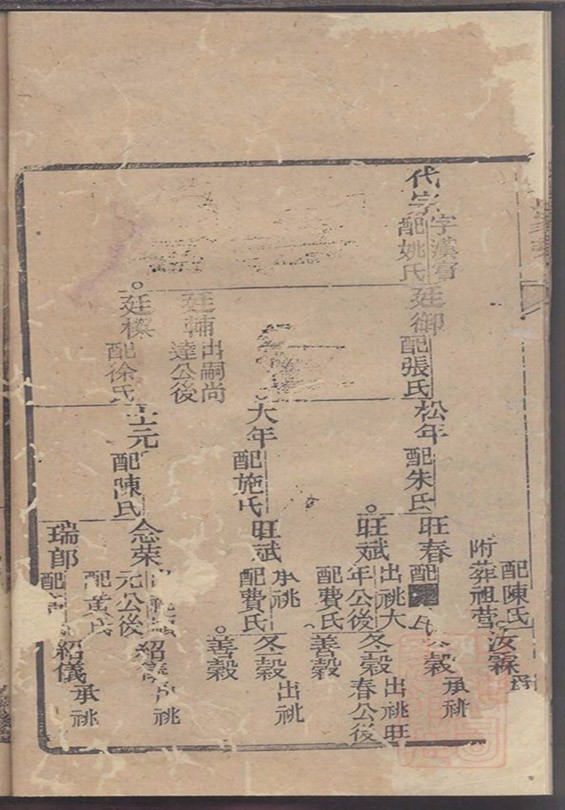 配陳氏
附葬祖塋
汝霖
代宗
字漢
配姚氏
廷御
配張氏
松年
配朱氏
旺春
配
氏
穀
承祧
旺斌
出祧大
年公後
配費氏
冬穀
出祧旺
春公後
善穀
廷輔
出嗣尚
達公後
大年
配施氏
旺斌
承祧
配費氏
冬穀
出祧
善穀
廷樑
配徐氏
士元
配陳氏
念榮
元公後
配黃氏
紹
祧
瑞郎
配
紹儀
承祧